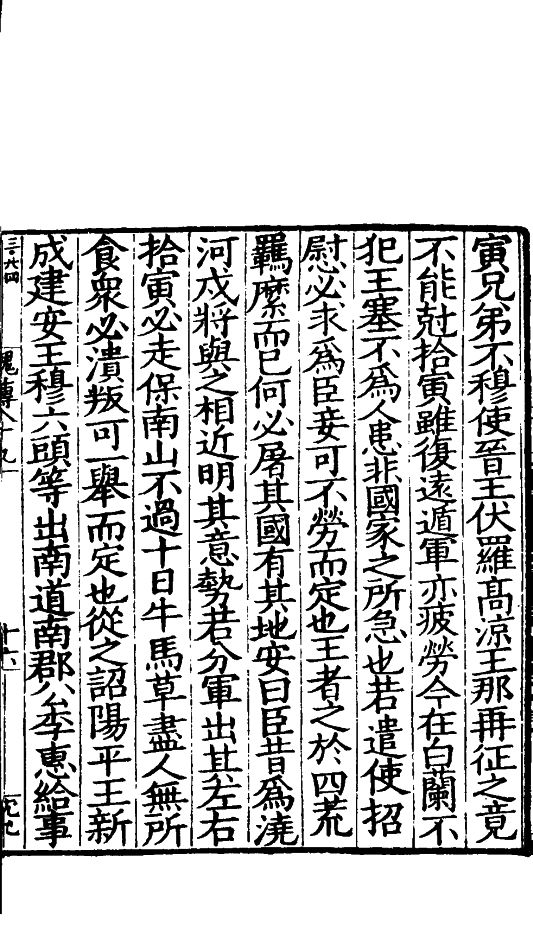 寅兄弟不穆使晉王伏羅髙涼王那再征之竟
不能尅拾寅雖復遠遁軍亦疲勞今在白蘭不
犯王塞不為人患非國家之所急也若遣使招
慰必求為臣妾可不勞而定也王者之於四荒
羈縻而已何必屠其國有其地安曰臣昔為澆
河戍將與之相近明其意勢若分軍出其左右
拾寅必走保南山不過十日牛馬草盡人無所
食衆必潰叛可一舉而定也從之詔陽平王新
成建安王穆六頭等出南道南郡公李惠給事
魏傳八十九
十六